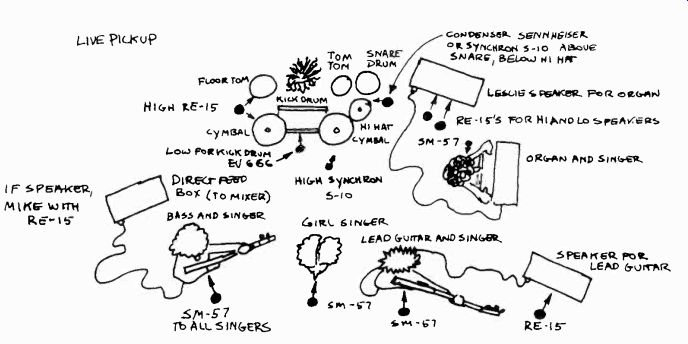 LIVE PICKUP
CONDENSER SENNHEISER
OR SYNCHRON S-10 ABOVE
SNARE, BELOW HI HAT
TOM
TOM
SNARE
DRUM
FLOOR TOM
KICK DRUM
LESLIE SPEAKER FOR ORGAN
HIGH RE-15
RE-15'S FOR HI AND LO SPEAKERS
CYMBAL
HI HAT
CYMBAL
SM-57
LOW FOR KICK DRUM
EV 666
ORGAN AND SINGER
HIGH SYNCHRON
S-10
IF SPEAKER,
MIKE WITH
RE-15
DIRECT FEED
BOX (TO MIXER)
BASS AND SINGER
GIRL SINGER
LEAD GUITAR AND SINGER
SPEAKER FOR
LEAD GUITAR
SM-57
TO ALL SINGERS
SM-57
SM-57
RE-15